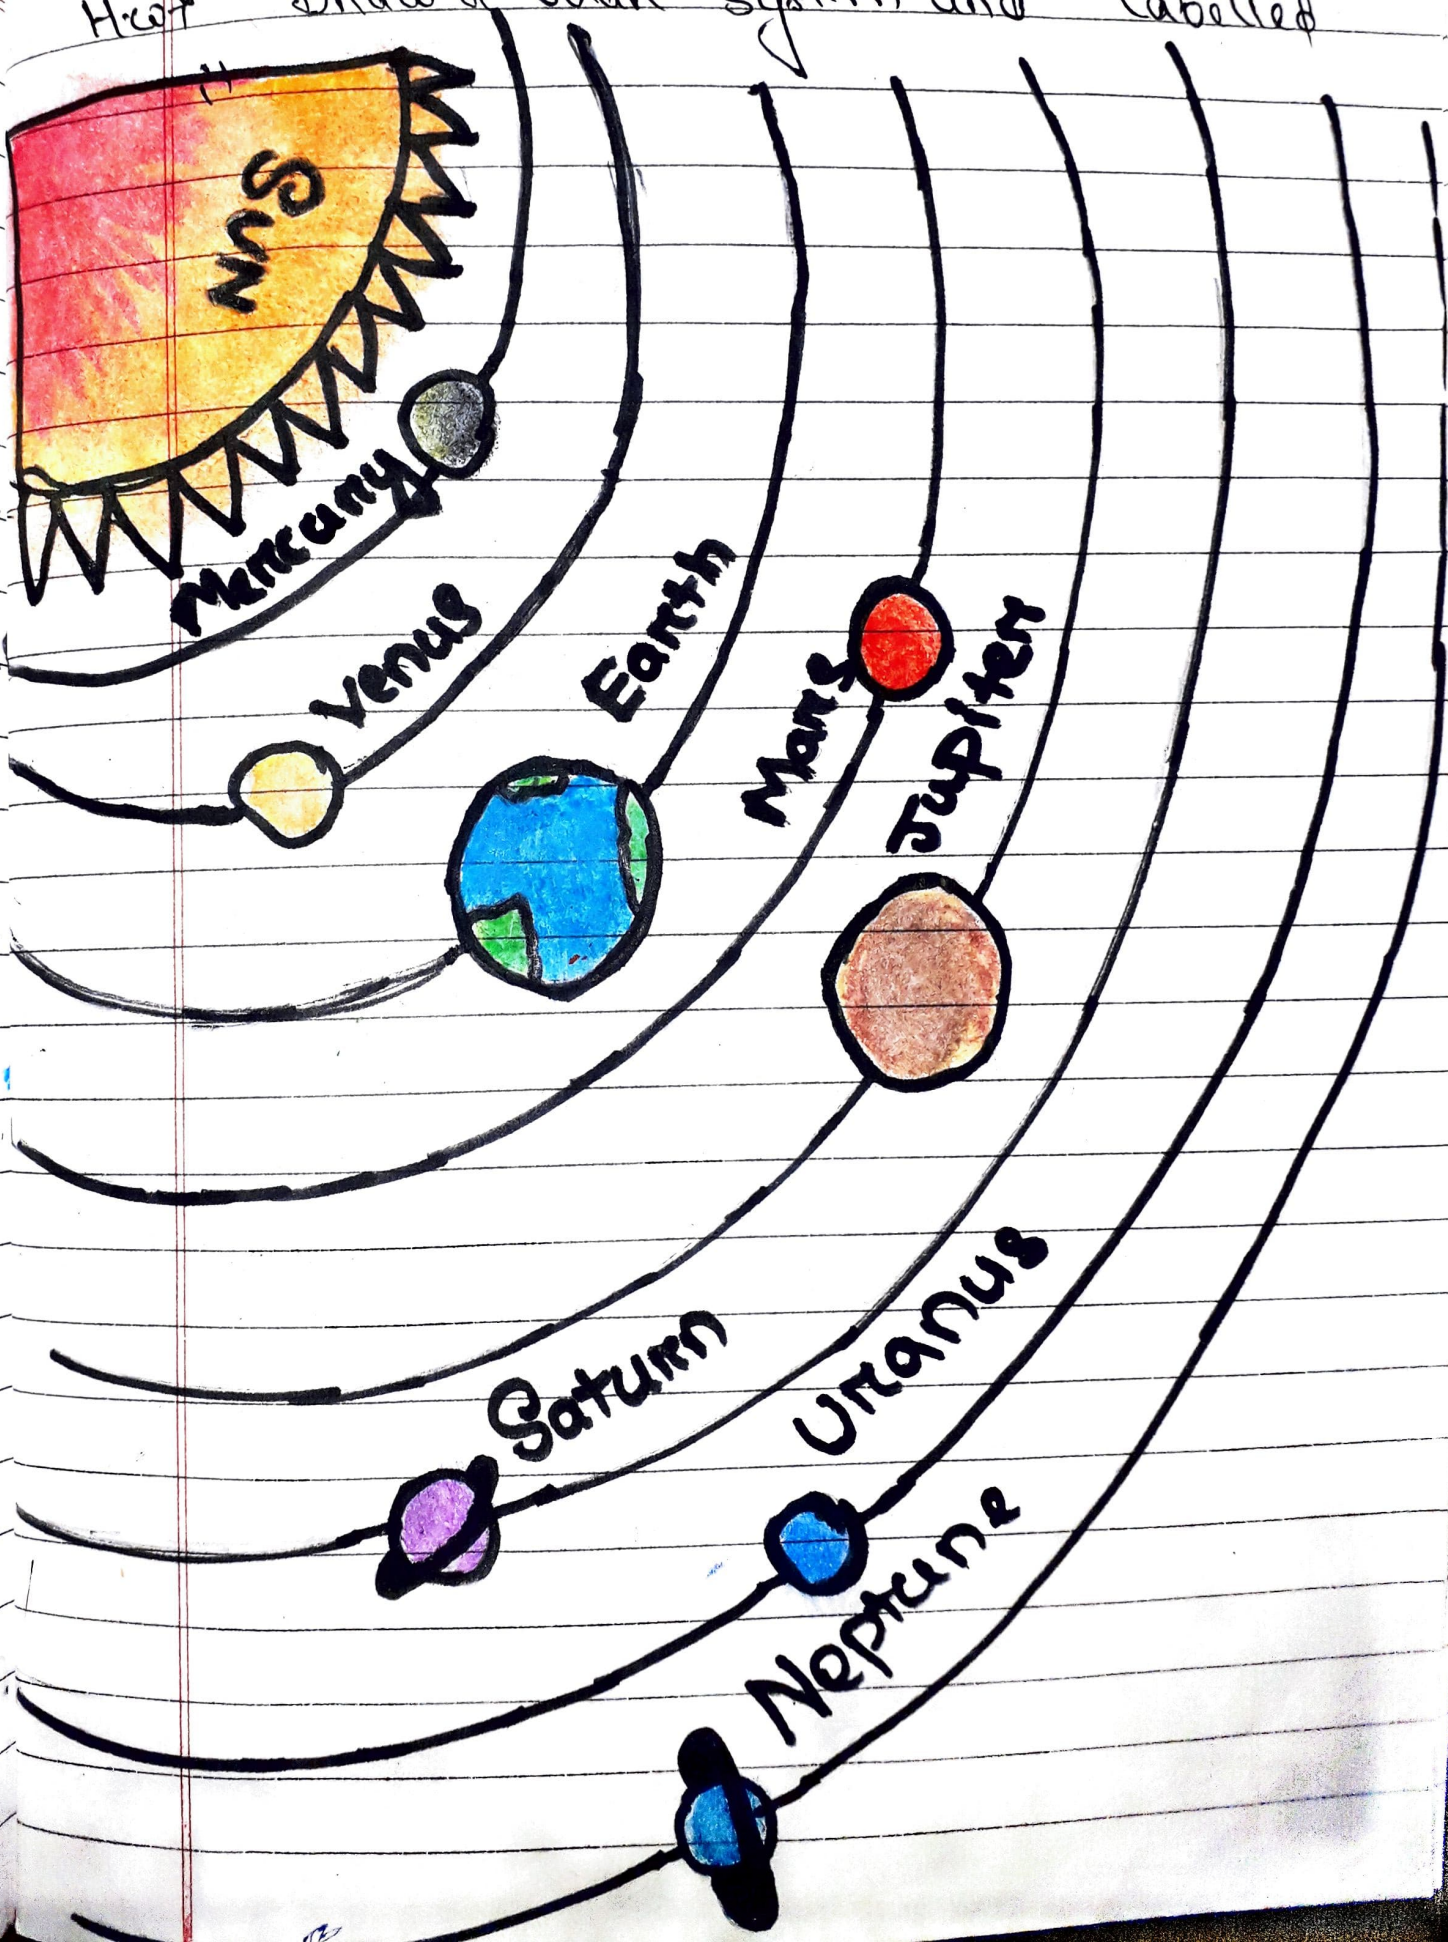 Draw a Solar System and labelled
Sun
Mercury
Venus
Earth
Mars
Jupiter
Saturn
Uranus
Neptune